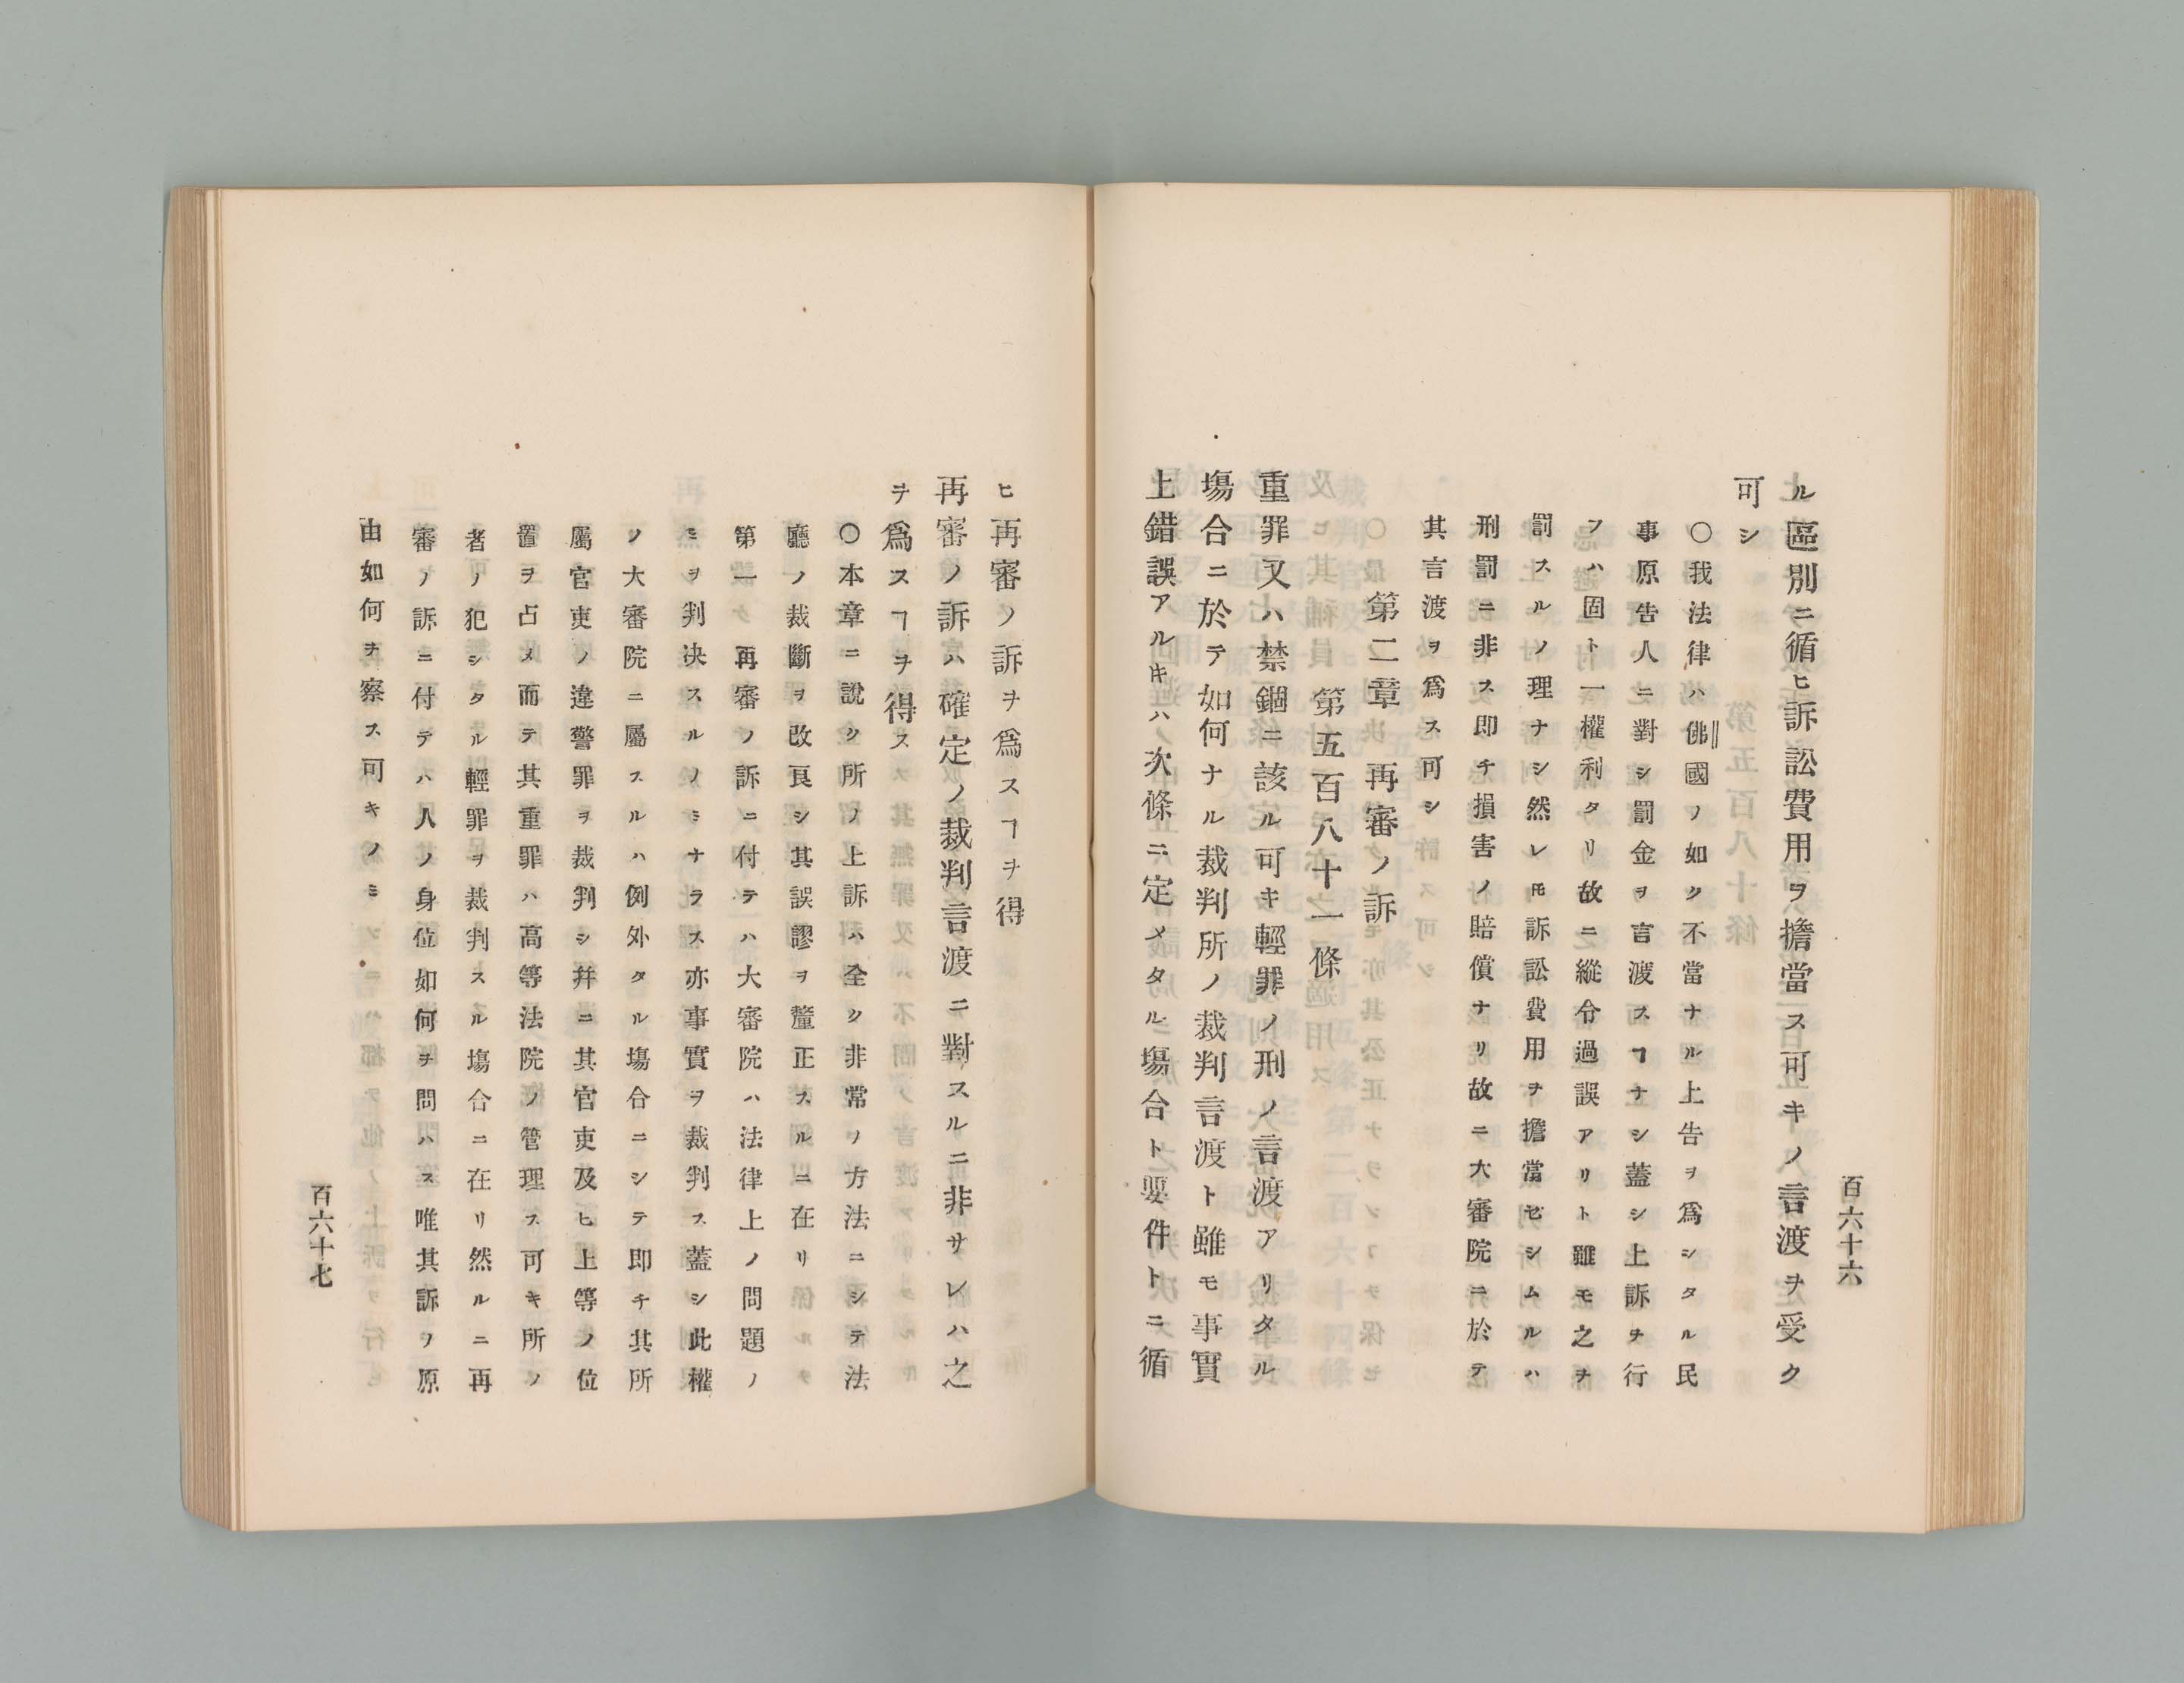 百六十六
ル區別ニ循ヒ訴訟費用ヲ擔當ス可キノ言渡ヲ受ク
可シ
〇我法律ハ佛國ノ如ク不當ナル上告ヲ爲シタル民
事原告人ニ對シ罰金ヲ言渡スヿナシ蓋シ上訴ヲ行
フハ固ト一權利タリ故ニ縱令過誤アリト雖モ之ヲ
罰スルノ理ナシ然レ𪜈訴訟費用ヲ擔當セシムルハ
刑罰ニ非ス即チ損害ノ賠償ナリ故ニ大審院ニ於テ
其言渡ヲ爲ス可シ
第二章 再審ノ訴
第五百八十一條
重罪又ハ禁錮ニ該ル可キ輕罪ノ刑ノ言渡アリタル
塲合ニ於テ如何ナル裁判所ノ裁判言渡ト雖モ事實
上錯誤アルキハ次條ニ定メタル塲合ト要件トニ循
ヒ再審ノ訴ヲ爲スヿヲ得
再審ノ訴ハ確定ノ裁判言渡ニ對スルニ非サレハ之
ヲ爲スヿヲ得ス
〇本章ニ說ク所ノ上訴ハ全ク非常ノ方法ニシテ法
廳ノ裁斷ヲ改良シ其誤謬ヲ釐正スルニ在リ
第一再審ノ訴ニ付テハ大審院ハ法律上ノ問題ノ
ミヲ判决スルノミナラス亦事實ヲ裁判ス蓋シ此權
ノ大審院ニ屬スルハ例外タル塲合ニシテ即チ其所
屬官吏ノ違警罪ヲ裁判シ幷ニ其官吏及ヒ上等ノ位
置ヲ占メ而テ其重罪ハ高等法院ノ管理ス可キ所ノ
者ノ犯シタル輕罪ヲ裁判スル塲合ニ在リ然ルニ再
審ノ訴ニ付テハ人ノ身位如何ヲ問ハス唯其訴ノ原
由如何ヲ察ス可キノミ
百六十七